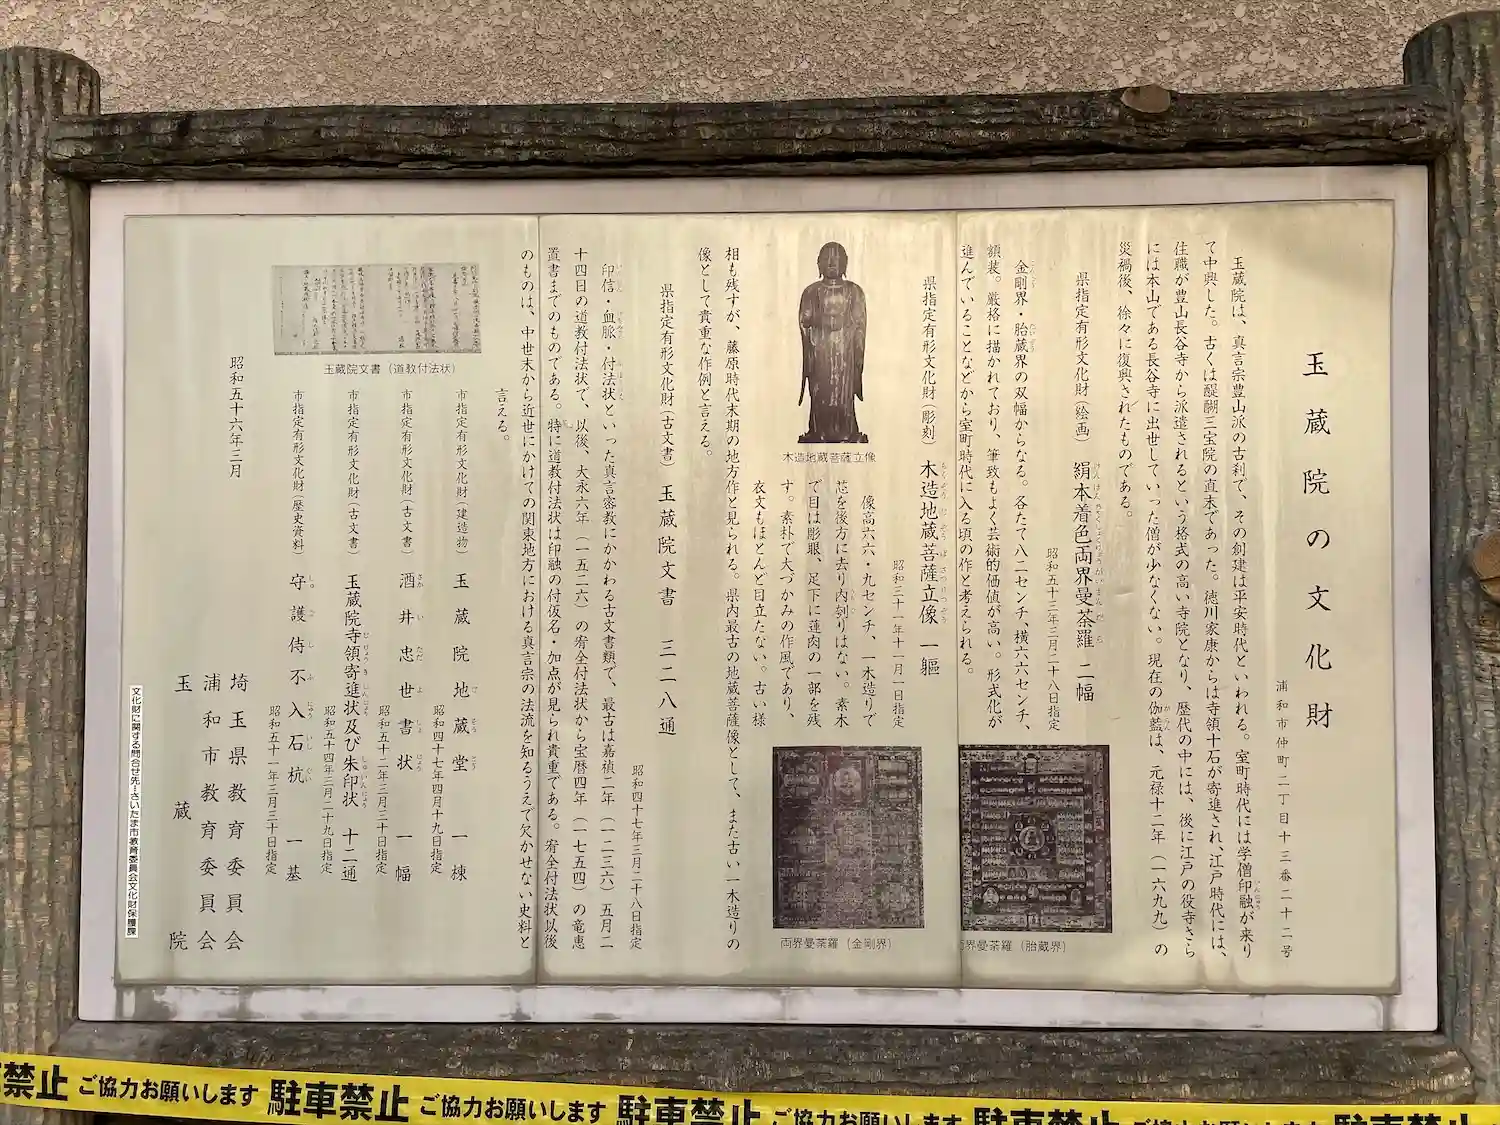 玉蔵院の文化財
浦和市仲町二丁目十三番二十二号
玉蔵院は、真言宗豊山派の古刹で、その創建は平安時代といわれる。室町時代には学僧印融が来り
て中興した。古くは醍醐三宝院の直末であった。徳川家康からは寺領十石が寄進され、江戸時代には、
住職が豊山長谷寺から派遣されるという格式の高い寺院となり、歴代の中には、後に江戸の役寺さら
には本山である長谷寺に出世していった僧が少なくない。現在の伽藍は、元禄十二年（一六九九）の
災禍後、徐々に復興されたものである。
県指定有形文化財（絵画） 絹本着色両界曼荼羅 二幅
昭和五十三年三月二十八日指定
金剛界・胎蔵界の双幅からなる。各たて八二センチ、横六六センチ、
額装。厳格に描かれており、筆致もよく芸術的価値が高い。形式化が
進んでいることなどから室町時代に入る頃の作と考えられる。
両界曼荼羅（胎蔵界）
県指定有形文化財（彫刻） 木造地蔵菩薩立像 一軀
昭和三十一年十一月一日指定
像高六六・九センチ、一木造りで
芯を後方に去り内刳りはない。素木
で目は彫眼、足下に蓮肉の一部を残
す。素朴で大づかみの作風であり、
衣文もほとんど目立たない。古い様
木造地蔵菩薩立像
両界曼荼羅（金剛界）
相も残すが、藤原時代末期の地方作と見られる。県内最古の地蔵菩薩像として、また古い一木造りの
像として貴重な作例と言える。
県指定有形文化財（古文書） 玉蔵院文書 三二八通
昭和四十七年三月二十八日指定
印信・血脈・付法状といった真言密教にかかわる古文書類で、最古は嘉禎二年（一二三六）五月二
十四日の道教付法状で、以後、大永六年（一五二六）の宥全付法状から宝暦四年（一七五四）の竜恵
置書までのものである。特に道教付法状は印融の付仮名・加点が見られ貴重である。宥全付法状以後
のものは、中世末から近世にかけての関東地方における真言宗の法流を知るうえで欠かせない史料と
言える。
玉蔵院文書（道教付法状）
市指定有形文化財（建造物） 玉蔵院地蔵堂 一棟
昭和四十七年四月十九日指定
市指定有形文化財（古文書） 酒井忠世書状 一幅
昭和五十二年三月三十日指定
市指定有形文化財（古文書） 玉蔵院寺領寄進状及び朱印状 十二通
昭和五十四年三月二十九日指定
市指定有形文化財（歴史資料） 守護侍不入石杭 一基
昭和五十一年三月三十日指定
昭和五十六年三月
埼玉県教育委員会
浦和市教育委員会
玉蔵院
文化財に関する問合せ先…さいたま市教育委員会文化財保護課
禁止 ご協力お願いします 駐車禁止 ご協力お願いします 駐車禁止 ご協力お願いします 駐車禁止 ご協力お願いします 駐車禁止